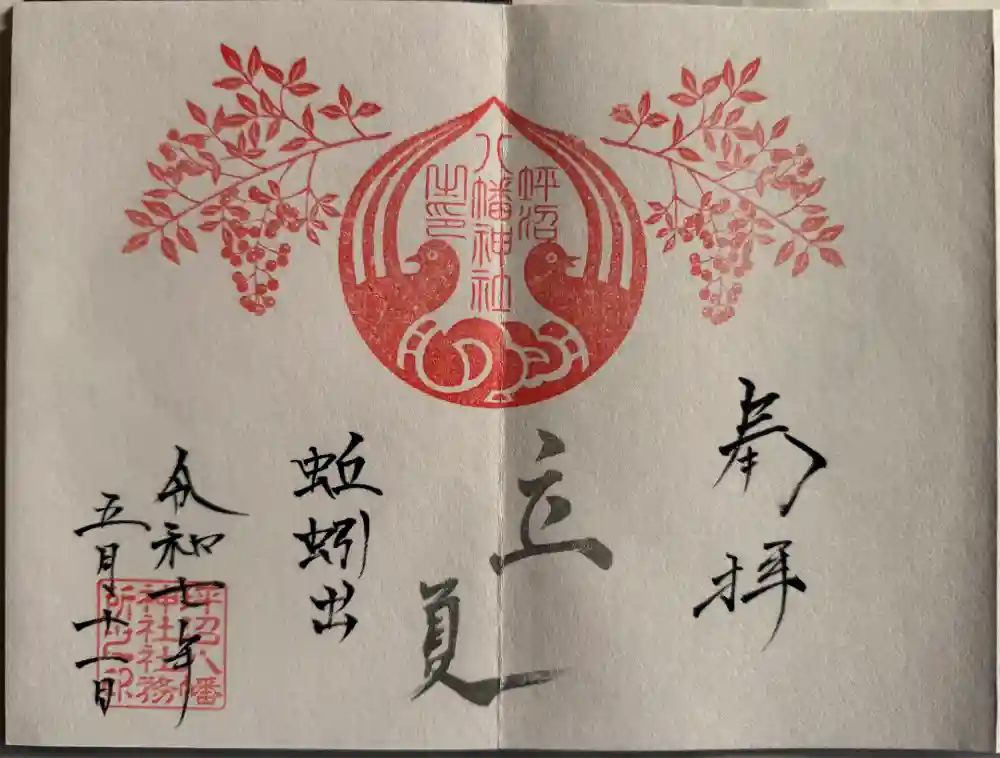 奉拝
坪沼
八幡神社
之印
立夏
蚯蚓出
令和七年
五月十一日
坪沼八幡
神社社務
所之印